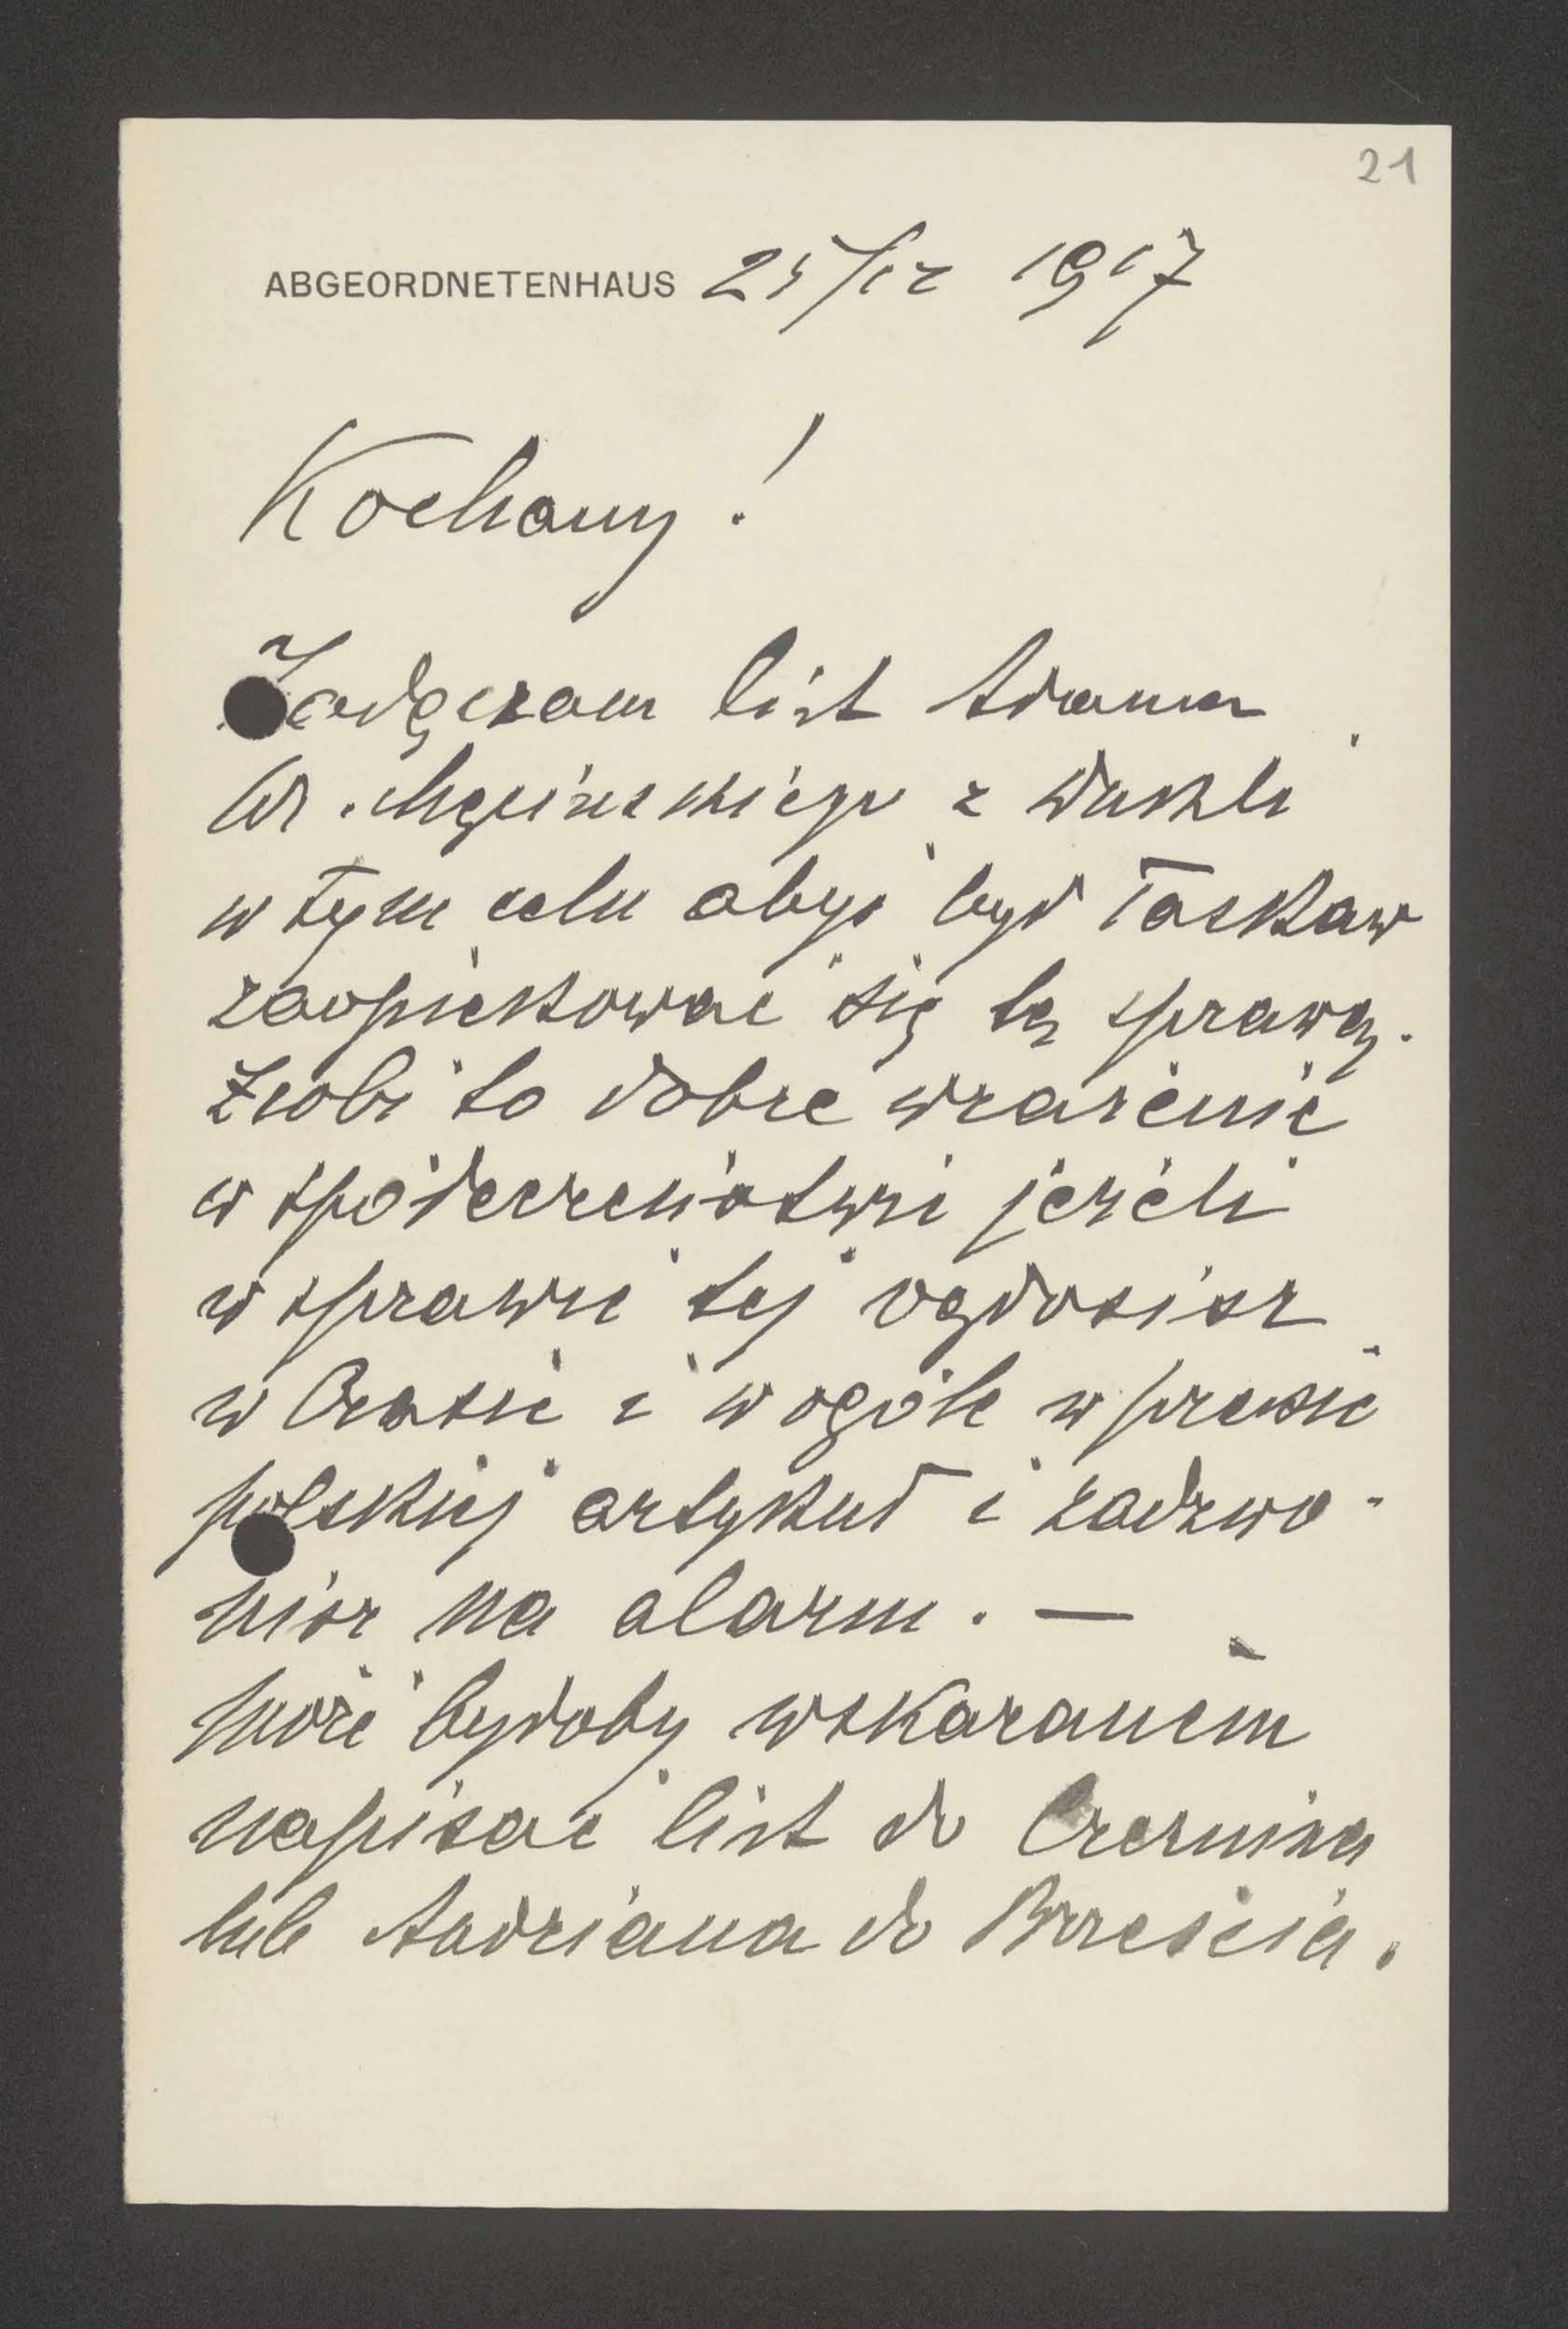 21
ABGEORDNETENHAUS 25/12 1917
Kochany!
Załączam list Adama
Hr. Męcińskiego z Dukli
w tym celu abyś był łaskaw
zaopiekować się tą sprawą.
Zrobi to dobre wrażenie
w społeczeństwie jeżeli
w sprawie tej ogłosisz
w Czasie i w ogóle w prasie
polskiej artykuł i zadzwo-
nisz na alarm. —
Może byłoby wskazanem
napisać list do Czernina
lub Andriana do Brześcia.